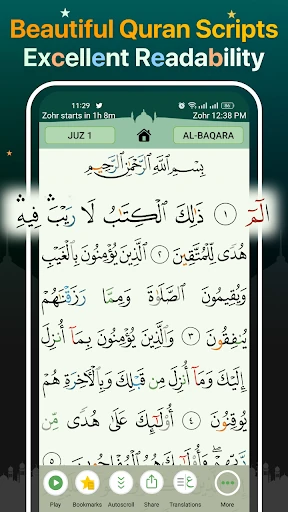 Beautiful Quran Scripts
Excellent Readability
11:29
Zohr starts in 1h 8m
Zohr 12:38 PM
JUZ 1
AL-BAQARA
بِسْمِ اللَّهِ الرَّحْمَٰنِ الرَّحِيمِ
الٓمٓ ۝١ ذَٰلِكَ الْكِتَابُ لَا رَيْبَ ۛ فِيهِ ۛ
هُدًى لِّلْمُتَّقِينَ ۝٢ الَّذِينَ يُؤْمِنُونَ بِالْغَيْبِ
وَيُقِيمُونَ الصَّلَاةَ وَمِمَّا رَزَقْنَاهُمْ
يُنفِقُونَ ۝٣ وَالَّذِينَ يُؤْمِنُونَ بِمَا أُنزِلَ
إِلَيْكَ وَمَا أُنزِلَ مِن قَبْلِكَ وَبِالْآخِرَةِ هُمْ
يُوقِنُونَ ۝٤ أُولَٰئِكَ عَلَىٰ هُدًى مِّن
رَّبِّهِمْ
Play
Bookmarks
Autoscroll
Share
Translations
More